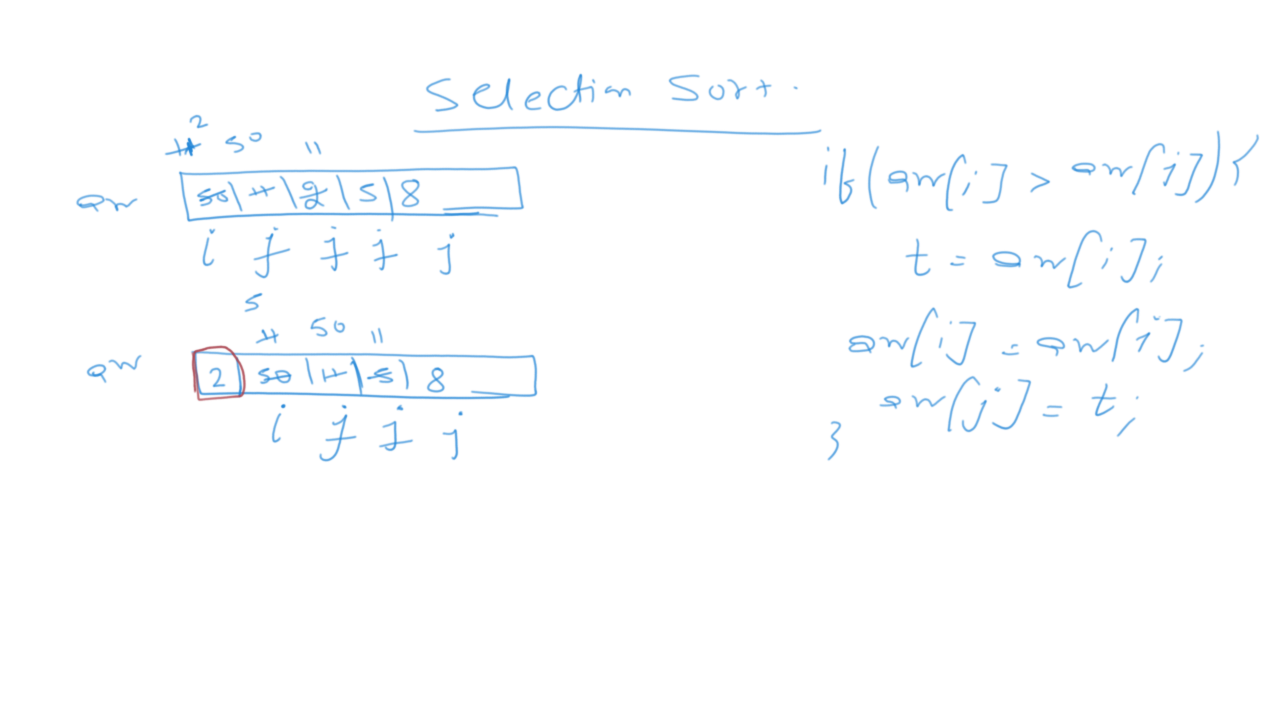 Selection Sort.
11 2 50 11
arr 50 | 11 | 2 | 5 | 8
i j j j j
5
11 50 11
arr 2 50 | 11 | 5 | 8
i j j j
if(arr[i] > arr[j]){
t = arr[i];
arr[i] = arr[j];
arr[j] = t;
}